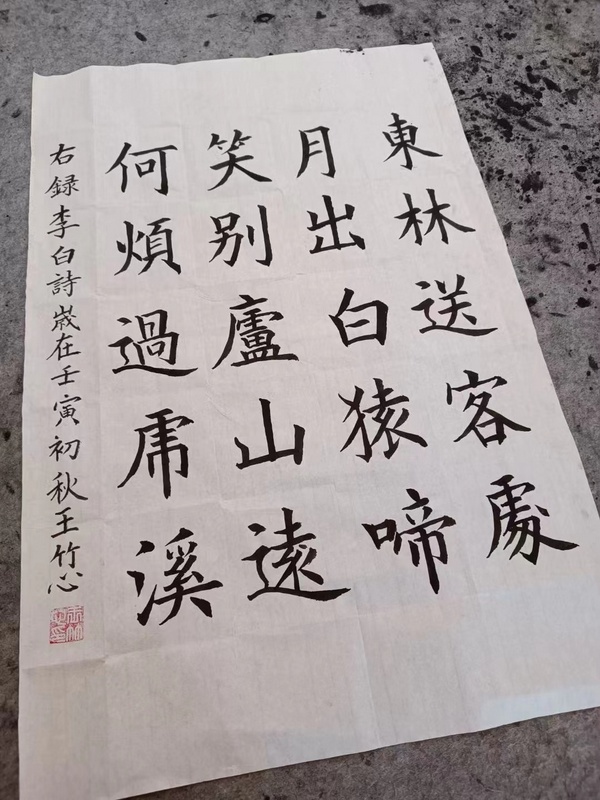 東林送客處
月出白猿啼
笑别廬山遠
何煩過虎溪
右録李白詩歲在壬寅初秋王竹心